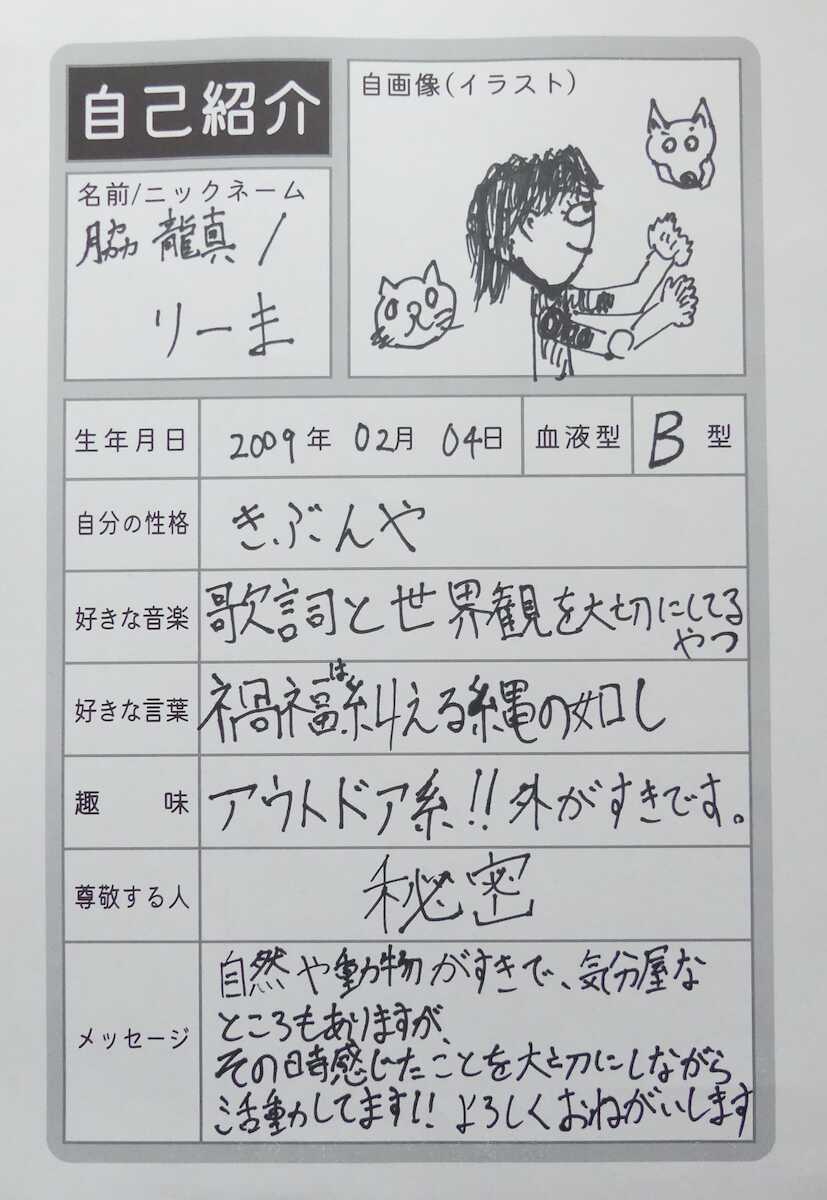 自己紹介
自画像(イラスト)
名前/ニックネーム
脇 龍真/
りーま
生年月日 2009年 02月 04日 血液型 B型
自分の性格 きぶんや
好きな音楽 歌詞と世界観を大切にしてる
やつ
好きな言葉 禍福は糾える縄の如し
趣味 アウトドア系!! 外がすきです。
尊敬する人 秘密
メッセージ
自然や動物がすきで、気分屋な
ところもありますが、
その時感じたことを大切にしながら
活動してます!! よろしくおねがいします